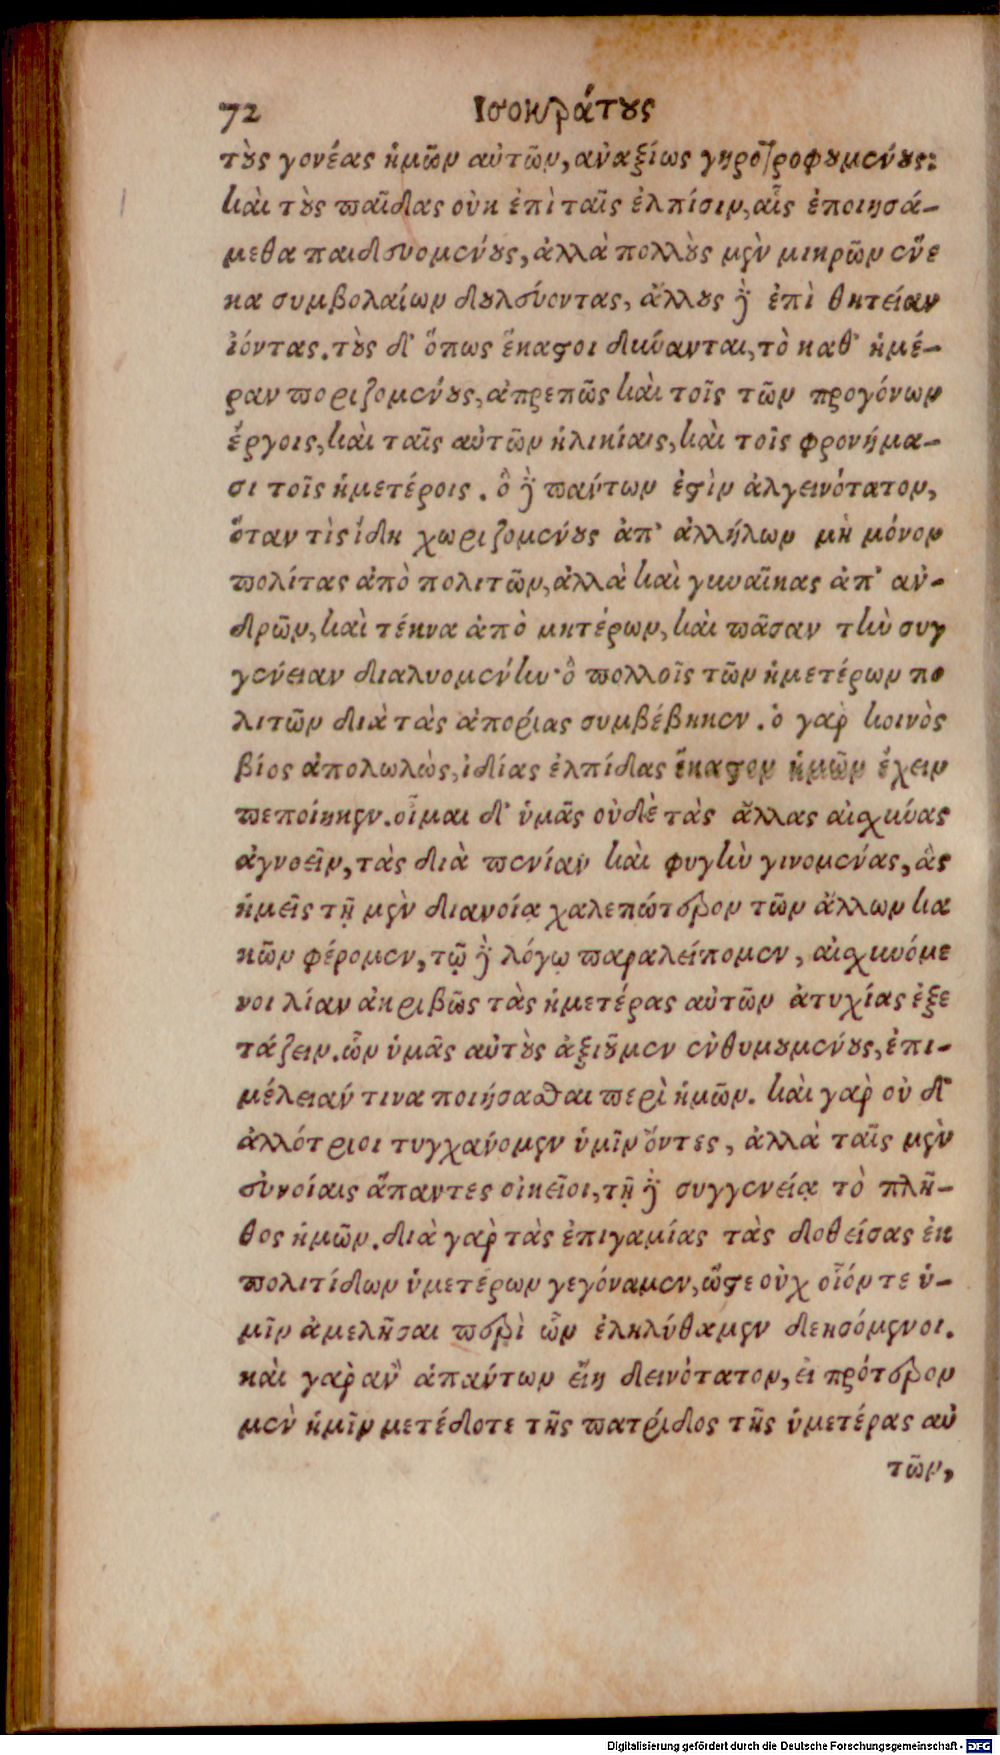 72 Ισοκράτους
τοὺς γονέας ἡμῶν αὐτῶν, ἀναξίως γηροτροφουμένους:
καὶ τοὺς παῖδας οὐκ ἐπὶ ταῖς ἐλπίσιν, αἷς ἐποιησά-
μεθα παιδευομένους, ἀλλὰ πολλοὺς μὲν μικρῶν ἕνε
κα συμβολαίων δουλεύοντας, ἄλλους δὲ ἐπὶ θητείαν
ἰόντας. τοὺς δ' ὅπως ἕκαστοι δύνανται, τὸ καθ' ἡμέ-
ραν ποριζομένους, ἀπρεπῶς καὶ τοῖς τῶν προγόνων
ἔργοις, καὶ ταῖς αὐτῶν ἡλικίαις, καὶ τοῖς φρονήμα-
σι τοῖς ἡμετέροις. ὃ δὲ πάντων ἐστὶν ἀλγεινότατον,
ὅταν τὶς ἴδη χωριζομένους ἀπ' ἀλλήλων μὴ μόνον
πολίτας ἀπὸ πολιτῶν, ἀλλὰ καὶ γυναῖκας ἀπ' ἀν-
δρῶν, καὶ τέκνα ἀπὸ μητέρων, καὶ πᾶσαν τὴν συγ
γένειαν διαλυομένην· ὃ πολλοῖς τῶν ἡμετέρων πο
λιτῶν διὰ τὰς ἀπορίας συμβέβηκεν. ὁ γὰρ κοινὸς
βίος ἀπολωλὼς, ἰδίας ἐλπίδας ἕκαστον ἡμῶν ἔχειν
πεποίηκεν. οἶμαι δ' ὑμᾶς οὐδὲ τὰς ἄλλας αἰσχύνας
ἀγνοεῖν, τὰς διὰ πενίαν καὶ φυγὴν γινομένας, ἃς
ἡμεῖς τῇ μὲν διανοίᾳ χαλεπώτερον τῶν ἄλλων κα
κῶν φέρομεν, τῷ δὲ λόγῳ παραλείπομεν, αἰσχυνόμε
νοι λίαν ἀκριβῶς τὰς ἡμετέρας αὐτῶν ἀτυχίας ἐξε
τάζειν. ὧν ὑμᾶς αὐτοὺς ἀξιοῦμεν ἐνθυμουμένους, ἐπι-
μέλειάν τινα ποιήσασθαι περὶ ἡμῶν. καὶ γὰρ οὐ δ'
ἀλλότριοι τυγχάνομεν ὑμῖν ὄντες, ἀλλὰ ταῖς μὲν
εὐνοίαις ἅπαντες οἰκεῖοι, τῇ δὲ συγγενείᾳ τὸ πλῆ-
θος ἡμῶν. διὰ γὰρ τὰς ἐπιγαμίας τὰς δοθείσας ἐκ
πολιτίδων ὑμετέρων γεγόναμεν, ὥστε οὐχ οἷόν τε ὑ-
μῖν ἀμελῆσαι περὶ ὧν ἐληλύθαμεν δεησόμενοι.
καὶ γὰρ ἂν ἁπάντων εἴη δεινότατον, εἰ πρότερον
μὲν ἡμῖν μετέδοτε τῆς πατρίδος τῆς ὑμετέρας αὐ
τῶν,
Digitalisierung gefördert durch die Deutsche Forschungsgemeinschaft - DFG